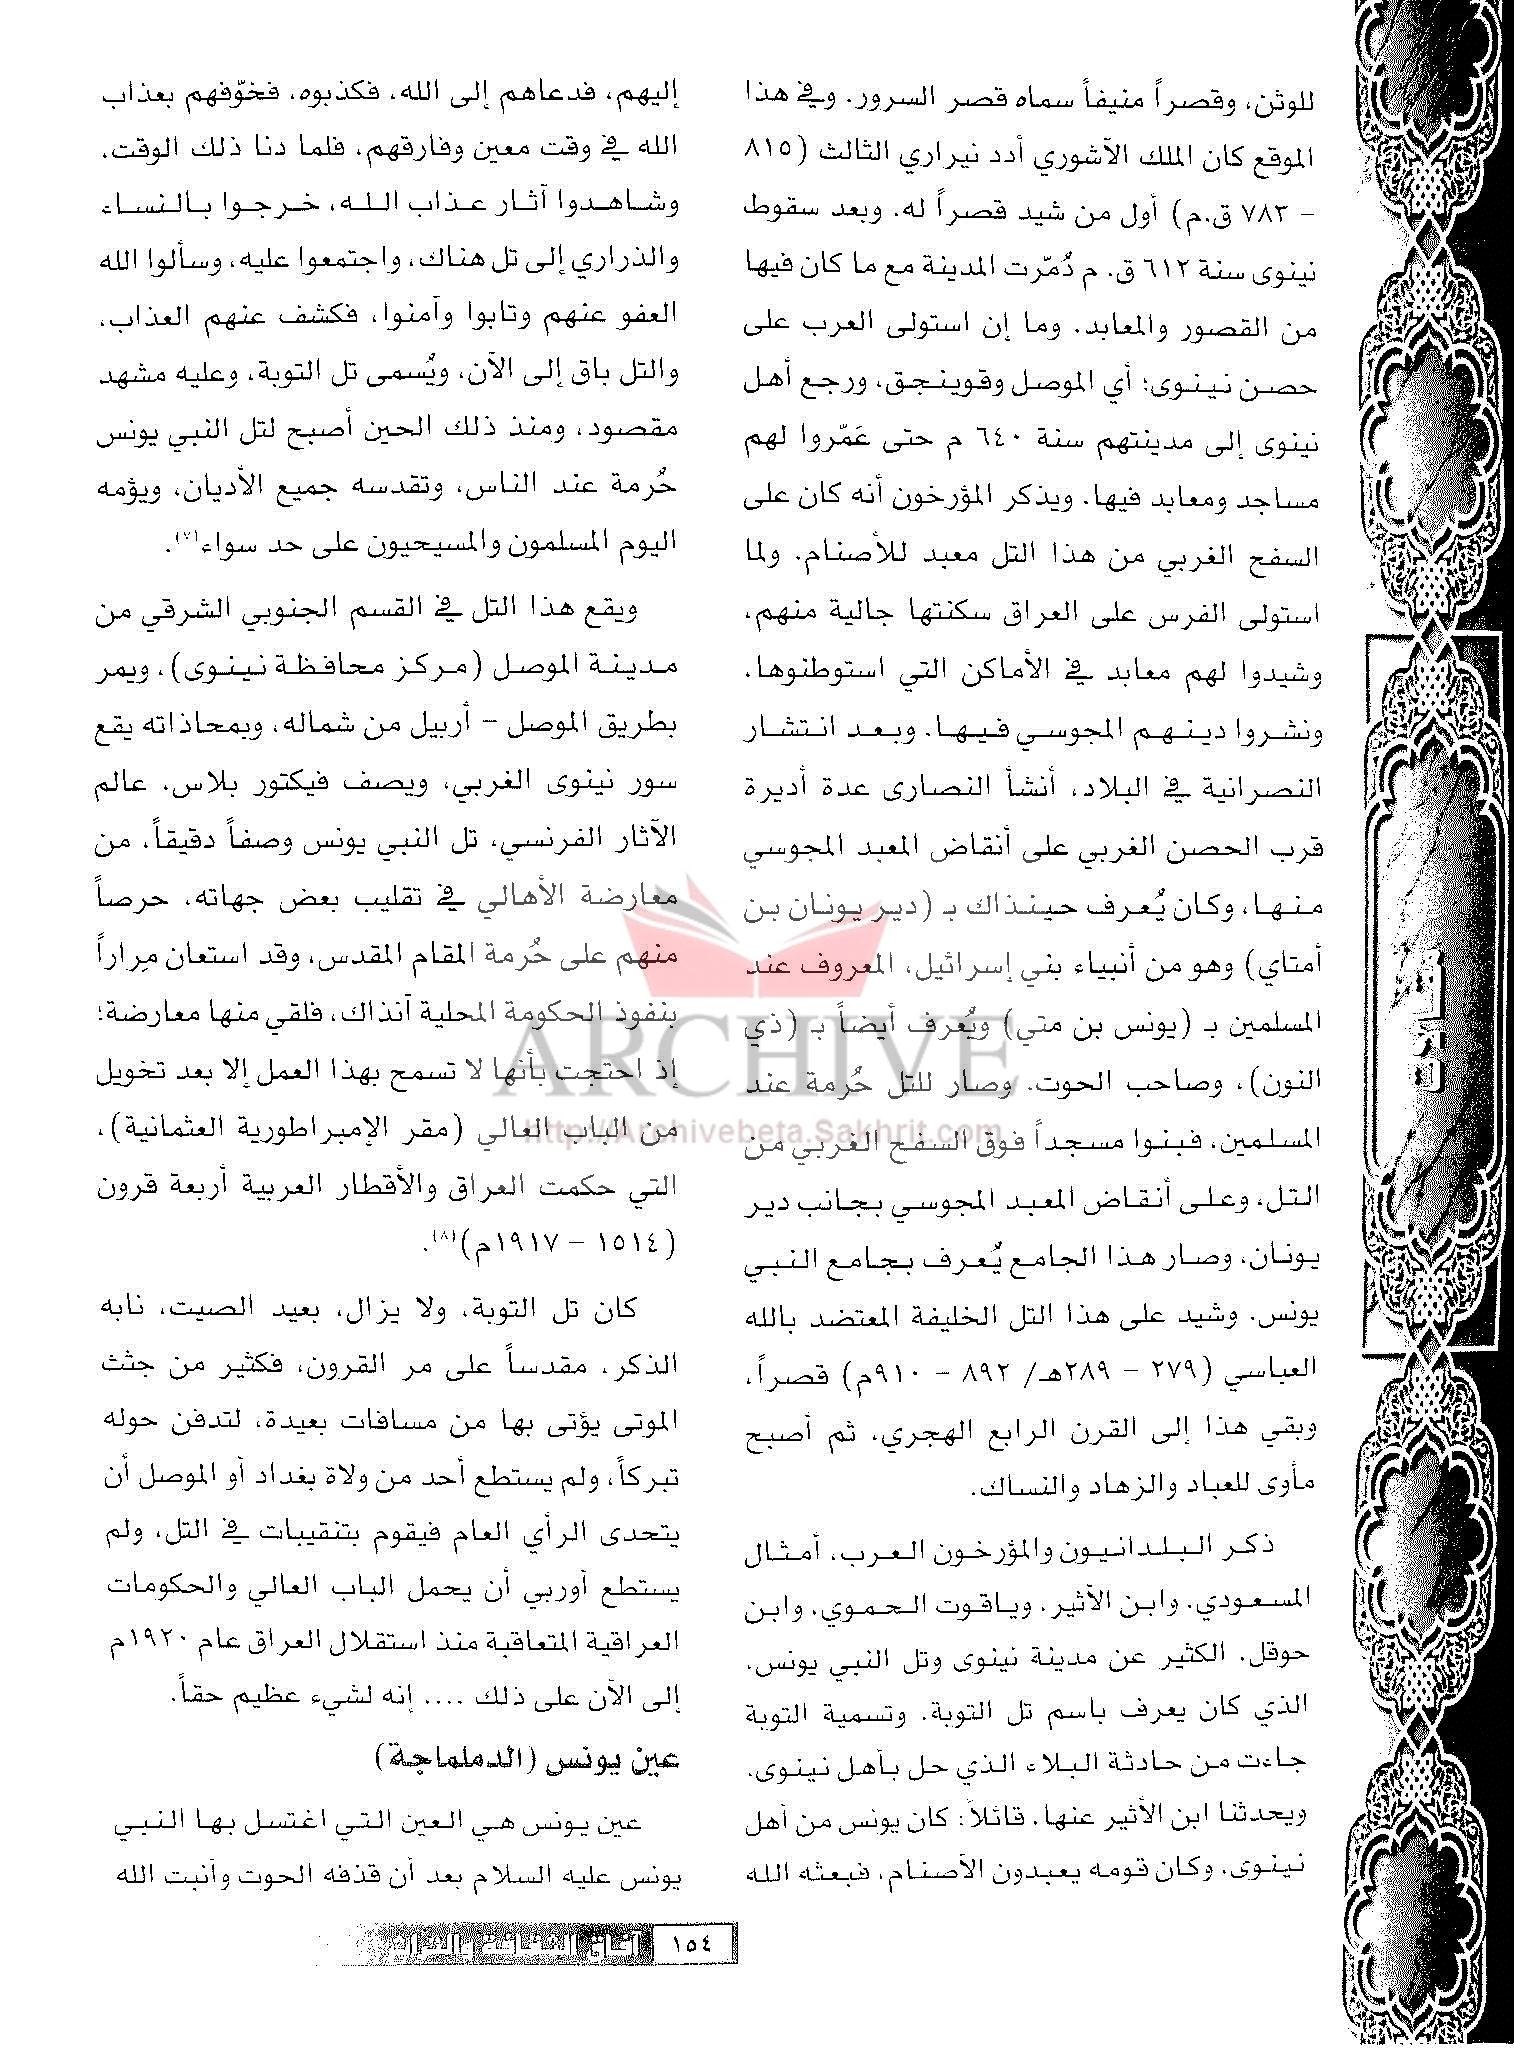 للوثن، وقصراً منيفاً سماه قصر السرور. وفي هذا
الموقع كان الملك الآشوري أدد نيراري الثالث (٨١٥
- ٧٨٣ ق.م) أول من شيد قصراً له. وبعد سقوط
نينوى سنة ٦١٢ ق. م دُمّرت المدينة مع ما كان فيها
من القصور والمعابد. وما إن استولى العرب على
حصن نينوى؛ أي الموصل وقوينجق، ورجع أهل
نينوى إلى مدينتهم سنة ٦٤٠ م حتى عَمّروا لهم
مساجد ومعابد فيها. ويذكر المؤرخون أنه كان على
السفح الغربي من هذا التل معبد للأصنام. ولما
استولى الفرس على العراق سكنتها جالية منهم،
وشيدوا لهم معابد في الأماكن التي استوطنوها،
ونشروا دينهم المجوسي فيها. وبعد انتشار
النصرانية في البلاد، أنشأ النصارى عدة أديرة
قرب الحصن الغربي على أنقاض المعبد المجوسي
منها، وكان يُعرف حينذاك بـ (دير يونان بن
أمتاي) وهو من أنبياء بني إسرائيل، المعروف عند
المسلمين بـ (يونس بن متي) ويُعرف أيضاً بـ (ذي
النون)، وصاحب الحوت. وصار للتل حُرمة عند
المسلمين، فبنوا مسجداً فوق السفح الغربي من
التل، وعلى أنقاض المعبد المجوسي بجانب دير
يونان، وصار هذا الجامع يُعرف بجامع النبي
يونس. وشيد على هذا التل الخليفة المعتضد بالله
العباسي (٢٧٩ - ٢٨٩هـ/ ٨٩٢ - ٩١٠م) قصراً،
وبقي هذا إلى القرن الرابع الهجري، ثم أصبح
مأوى للعباد والزهاد والنساك.
ذكر البلدانيون والمؤرخون العرب، أمثال
المسعودي، وابن الأثير، وياقوت الحموي، وابن
حوقل، الكثير عن مدينة نينوى وتل النبي يونس،
الذي كان يعرف باسم تل التوبة. وتسمية التوبة
جاءت من حادثة البلاء الذي حل بأهل نينوى،
ويحدثنا ابن الأثير عنها، قائلاً: كان يونس من أهل
نينوى، وكان قومه يعبدون الأصنام، فبعثه الله
إليهم، فدعاهم إلى الله، فكذبوه، فخوّفهم بعذاب
الله في وقت معين وفارقهم، فلما دنا ذلك الوقت،
وشاهدوا آثار عذاب الله، خرجوا بالنساء
والذراري إلى تل هناك، واجتمعوا عليه، وسألوا الله
العفو عنهم وتابوا وآمنوا، فكشف عنهم العذاب،
والتل باق إلى الآن، ويُسمى تل التوبة، وعليه مشهد
مقصود، ومنذ ذلك الحين أصبح لتل النبي يونس
حُرمة عند الناس، وتقدسه جميع الأديان، ويؤمه
اليوم المسلمون والمسيحيون على حد سواء(٧).
ويقع هذا التل في القسم الجنوبي الشرقي من
مدينة الموصل (مركز محافظة نينوى)، ويمر
بطريق الموصل - أربيل من شماله، وبمحاذاته يقع
سور نينوى الغربي، ويصف فيكتور بلاس، عالم
الآثار الفرنسي، تل النبي يونس وصفاً دقيقاً، من
معارضة الأهالي في تقليب بعض جهاته، حرصاً
منهم على حُرمة المقام المقدس، وقد استعان مِراراً
بنفوذ الحكومة المحلية آنذاك، فلقي منها معارضة؛
إذ احتجت بأنها لا تسمح بهذا العمل إلا بعد تخويل
من الباب العالي (مقر الإمبراطورية العثمانية)،
التي حكمت العراق والأقطار العربية أربعة قرون
(١٥١٤ - ١٩١٧م)(٨).
كان تل التوبة، ولا يزال، بعيد الصيت، نابه
الذكر، مقدساً على مر القرون، فكثير من جثث
الموتى يؤتى بها من مسافات بعيدة، لتدفن حوله
تبركاً، ولم يستطع أحد من ولاة بغداد أو الموصل أن
يتحدى الرأي العام فيقوم بتنقيبات في التل، ولم
يستطع أوربي أن يحمل الباب العالي والحكومات
العراقية المتعاقبة منذ استقلال العراق عام ١٩٢٠م
إلى الآن على ذلك .... إنه لشيء عظيم حقاً.
عين يونس (الدملماجة)
عين يونس هي العين التي اغتسل بها النبي
يونس عليه السلام بعد أن قذفه الحوت وأنبت الله
مقالات
ARCHIVE
http://Archivebeta.Sakhrit.com
١٥٤ آفاق الثقافة والتراث